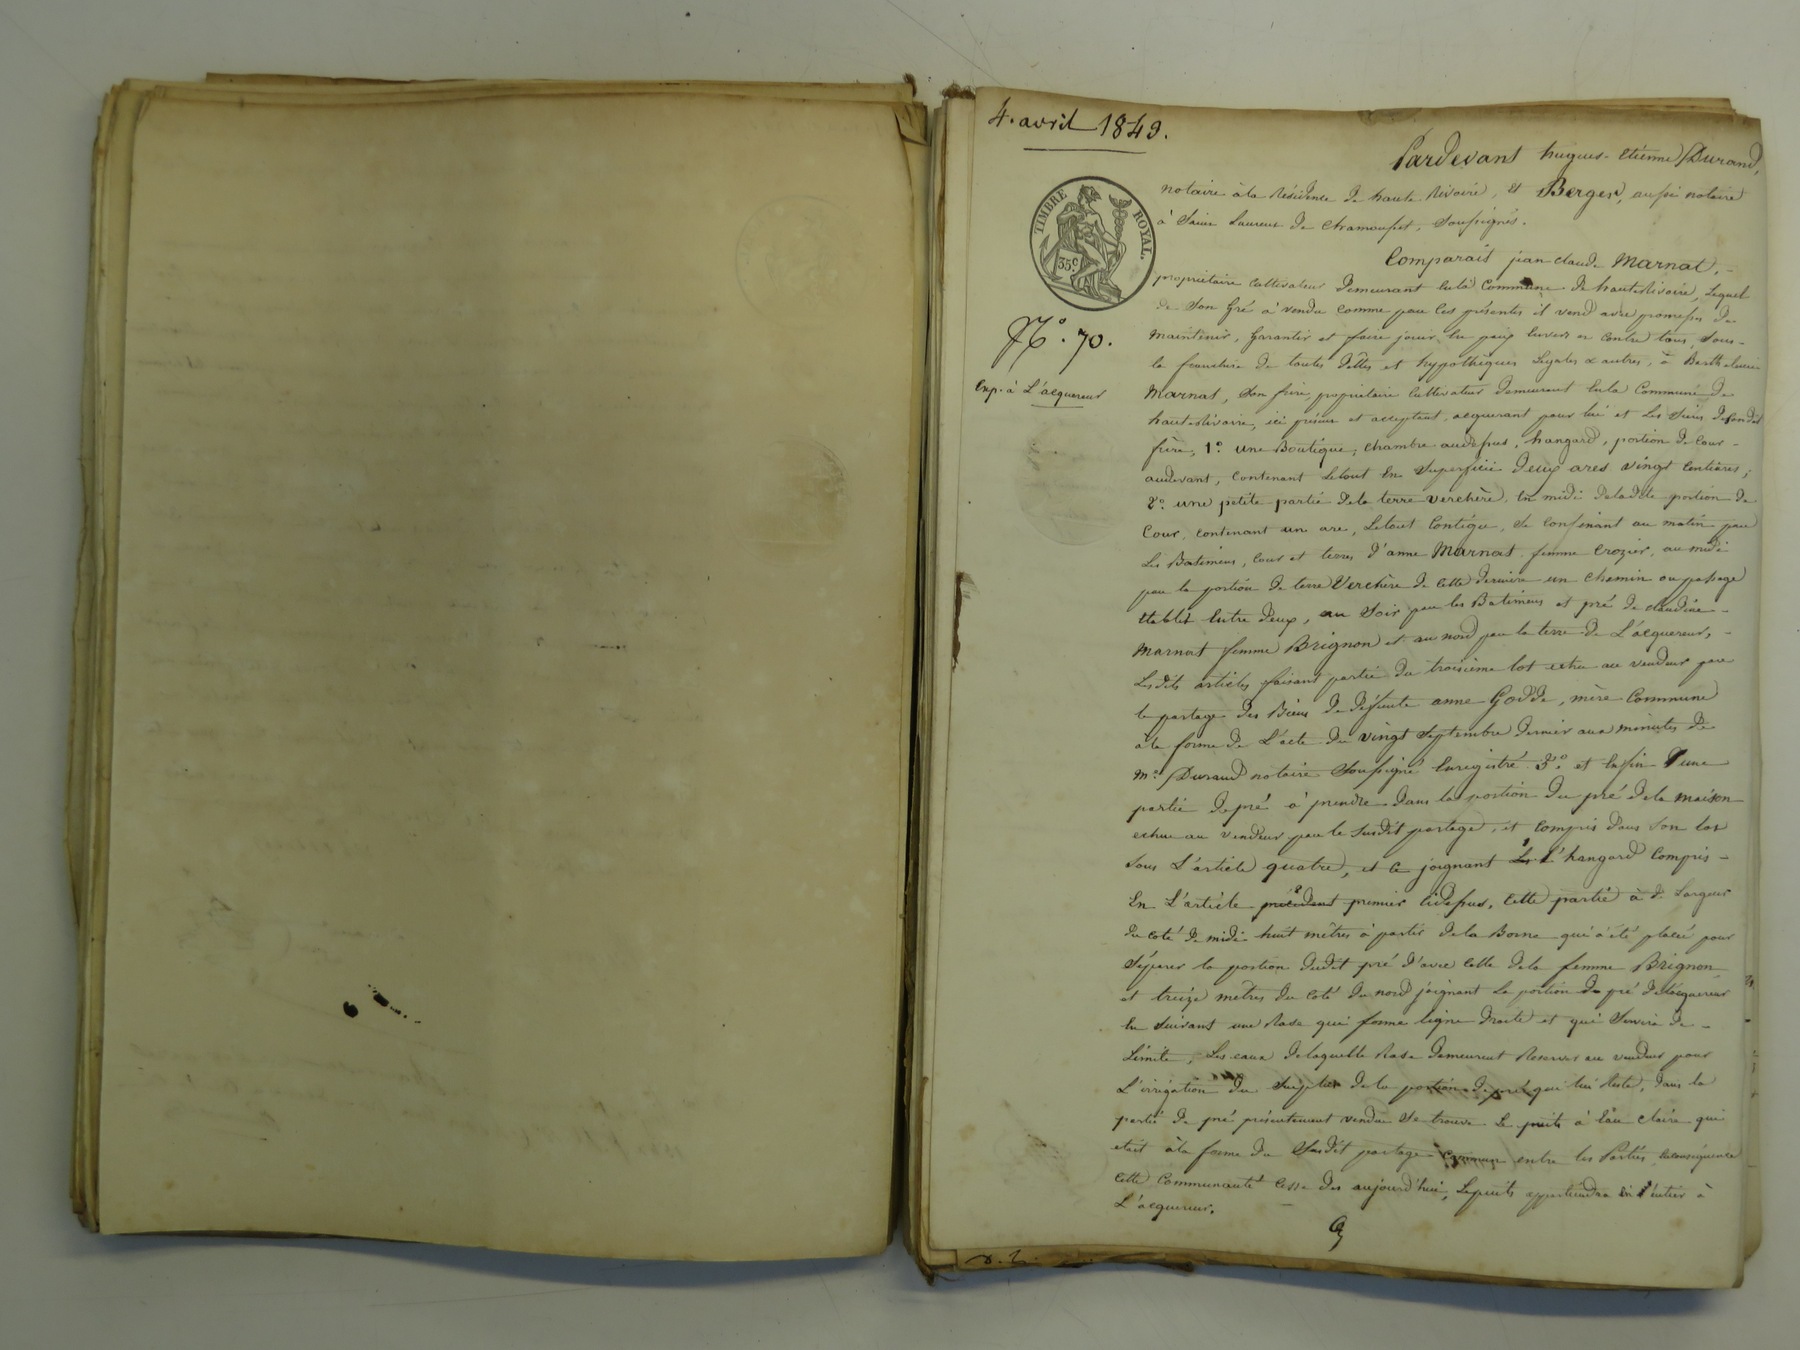 4. avril 1849.
TIMBRE ROYAL.
35c.
N.° 70.
Exp. à L'acquereur
Pardevant hugues-Etienne Durand,
notaire à la Résidence de haute Rivoire, et Berger, aussi notaire
à Saint Laurent de Chamousset, Soussignés.
Comparait jean claude Marnat,
propriétaire Cultivateur demeurant enla Commune de haute Rivoire, Lequel
de Son Gré à vendu comme par Ces présentes il vend avec promesse de
maintenir, Garantir et faire jouir en paix envers et Contre tous, Sous
la franchise de toutes dettes et hypothèques Légales & autres, à Barthelemi
Marnat, Son frère, propriétaire Cultivateur demeurant enla Commune de
haute Rivoire, ici présent et acceptant, acquerant pour lui et Les Siens desondit
frère, 1.° une Boutique, chambre audessus, hangard, portion de Cour
audevant, Contenant Letout En Superficie deux ares vingt Centiares;
2.° une petite partie dela terre verchère, En midi deladite portion de
Cour, Contenant un are, Letout Contigu, Se Confinant au matin par
Les Batimens, Cour et terres d'anne Marnat femme Crozier, au midi
par la portion de terre Verchère de Cette dernière un Chemin ou passage
Etabli Entre deux, au Soir par les Batimens et pré de claudine
Marnat femme Brignon et au nord par la terre de L'acquereur,
Lesdits articles faisant partie du troisième lot echu au vendeur par
le partage des Biens de défunte anne Godde, mère Commune
àla forme de L'acte du vingt Septembre dernier aux minutes de
M.e Durand notaire Soussigné Enregistré 3.° et Enfin d'une
partie depré à prendre dans la portion du pré dela maison
echue au vendeur par le Susdit partage, et Compris dans Son lot
Sous L'article quatre, et Ce joignant L'hangard Compris
En L'article précédent premier Cidessus, Cette partie à de Largeur
du Coté de midi huit mètres à partir dela Borne qui a été placée pour
Séparer la portion dudit pré d'avec Celle dela femme Brignon
et treize mètres du Coté du nord joignant La portion de pré deL'acquereur
En Suivant une Rase qui forme ligne droite et qui Servira de
Limite, Les eaux delaquelle Rase demeurent Réservées au vendeur pour
L'irrigation du Surplus dela portion depré qui lui Reste, dans la
partie de pré présentement vendue Se trouve Le puits à Eau Claire qui
etait àla forme du Susdit partage Commun entre les Parties, Enconséquence
Cette Communauté Cesse des aujourd'hui, Lepuits appartiendra En Entier à
L'acquereur.